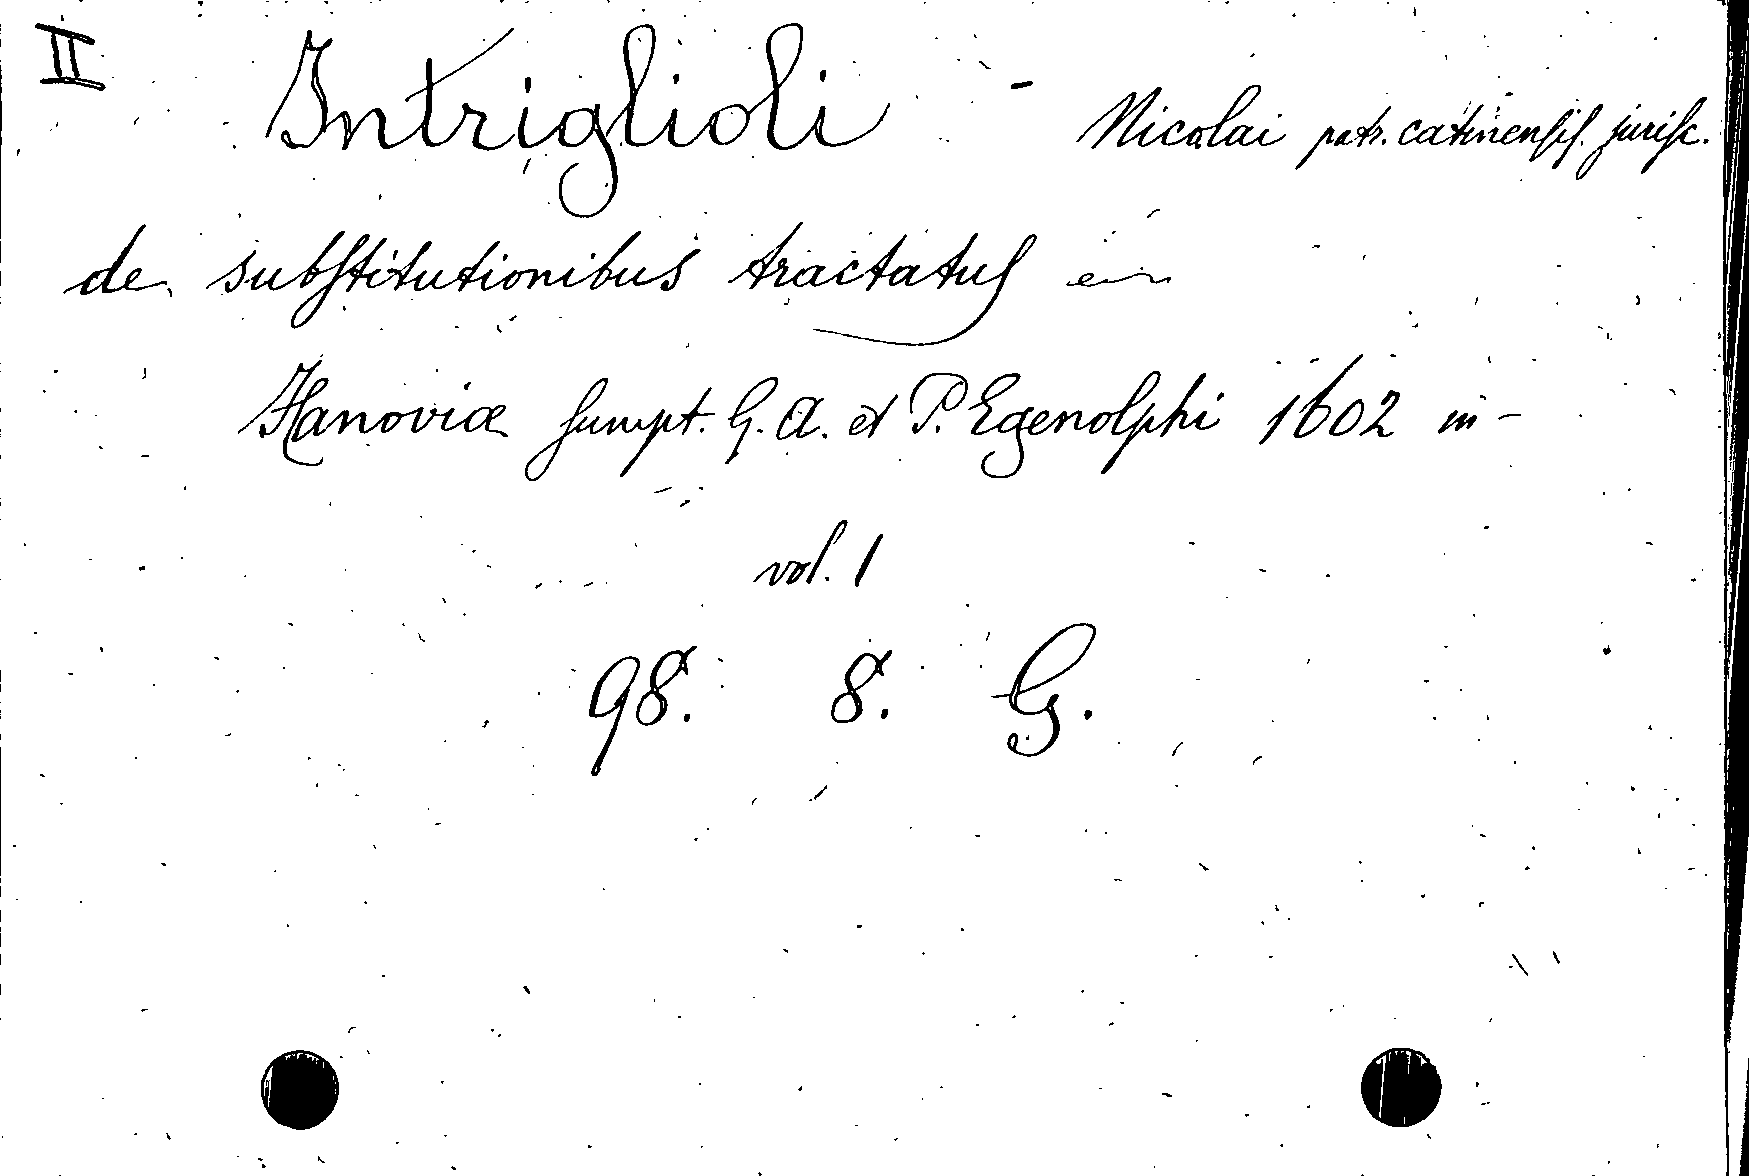 II Intriglioli - Nicolai patr. catinensis. jurisc.
de substitutionibus tractatus
Hanoviæ sumpt. G. A. et P. Egenolphi 1602 in-
vol. 1
98. 8. G.